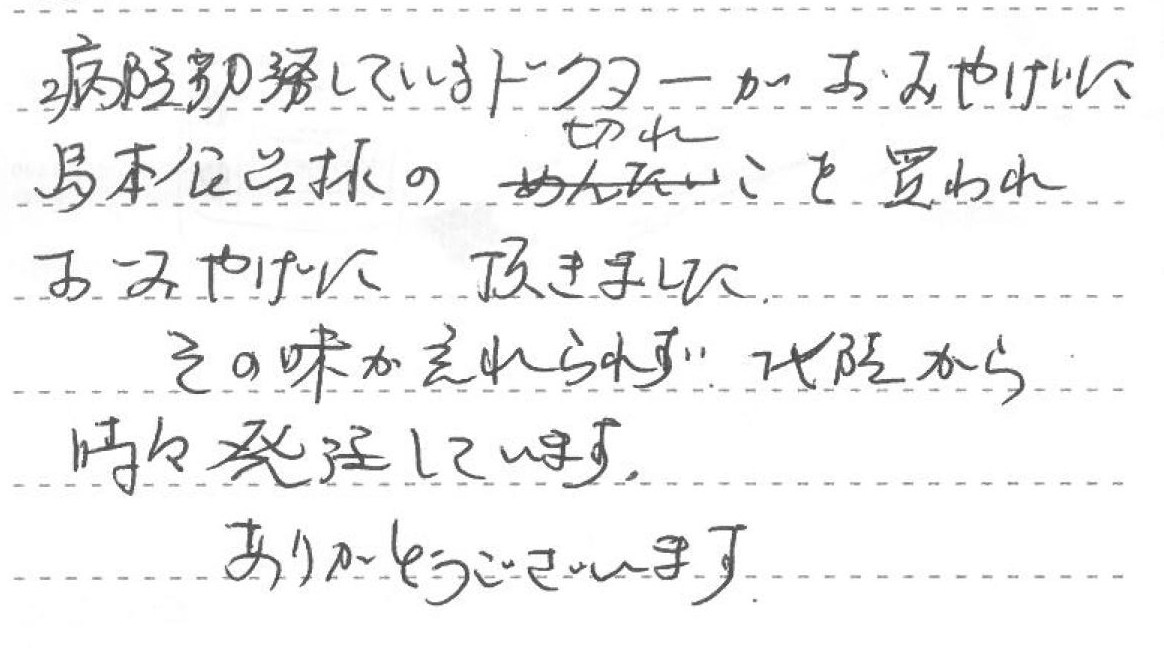 病院勤務しているドクターがおみやげに
切れ
島本食品様の めんたいこを買われ
おみやげに 頂きました.
その味が忘れられず 大阪から
時々発注しています.
ありがとうございます.